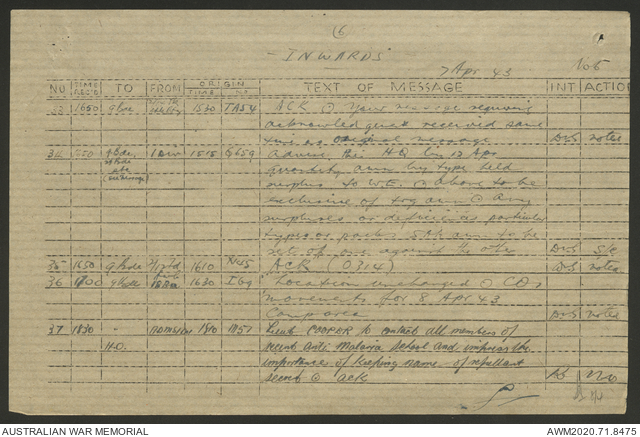 6
INWARDS
7 Apr 43
No 5
NO TIME REC'D TO FROM ORIGIN TIME No TEXT OF MESSAGE INT ACTION
33 1650 9 Bde 1530 TA54 ACK O Your message requiring
acknowledgment received same
time as original message DvS noted
34 1650 9 Bde 1 Div 1515 G659 Advise this HQ by 12 Apr
quantity amn by type held
surplus to W.E. O Above to be
exclusive of trg amn O Any
surpluses or deficiencies particular
types or packs SAA amn to be
set off one against the other DvS
35 1650 9 Bde 1610 N45 ACK (0314) DvS noted
36 1700 9 Bde 1630 IG9 Location unchanged O COs
movements for 8 Apr 43
Coy area DvS noted
37 1830 " 1810 M57 Lieut COOPER to contact all members of
H.Q. recent Anti Malaria School and impress the
importance of keeping name of repellant
secret O ack
AUSTRALIAN WAR MEMORIAL
AWM2020.71.8475